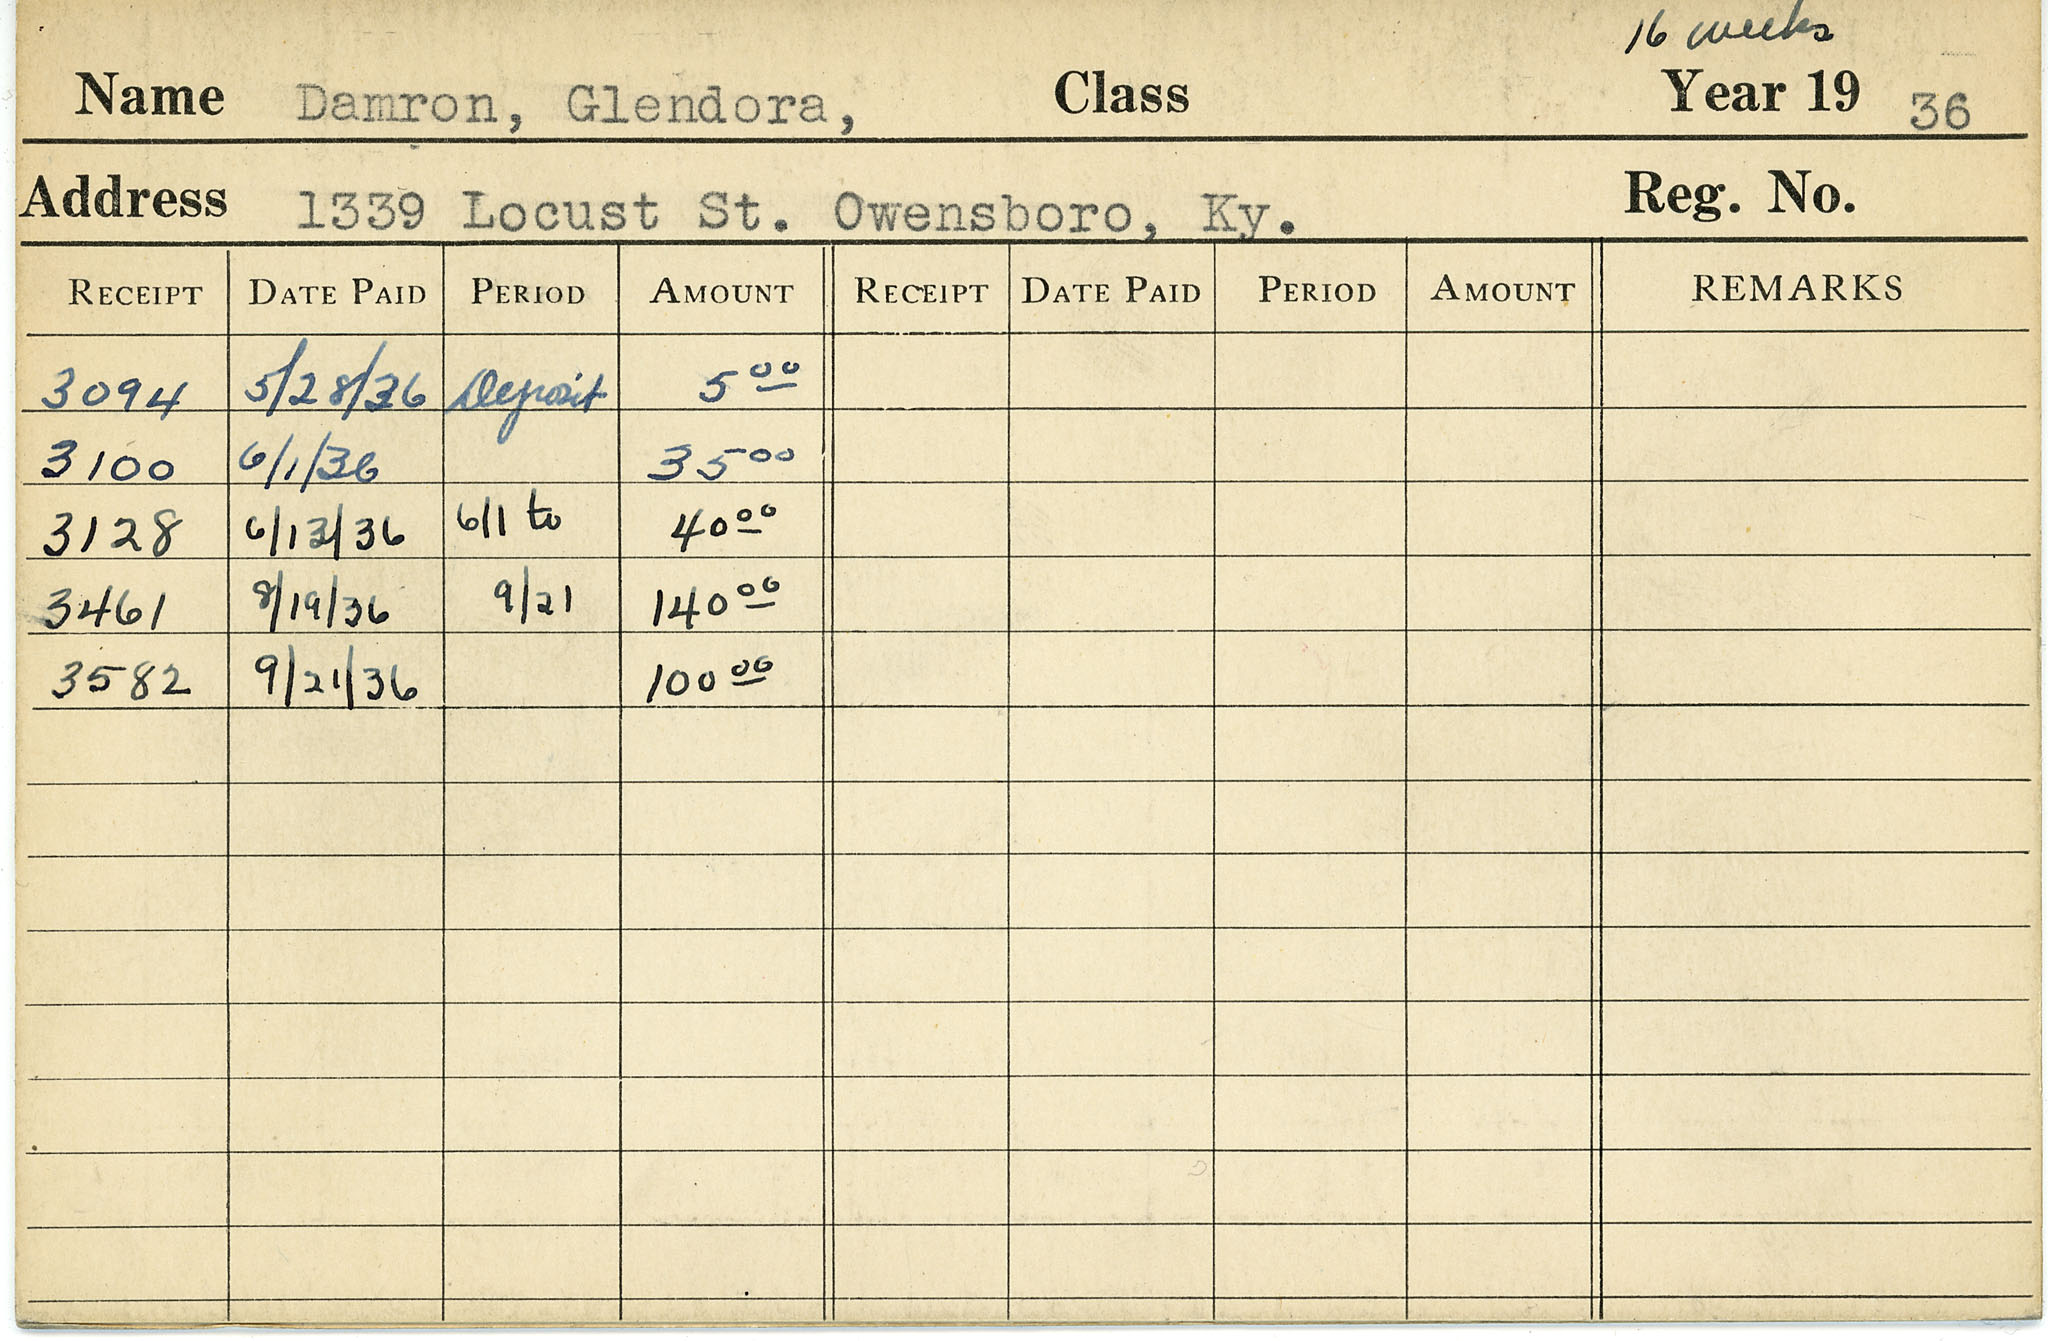 16 weeks
Name Damron, Glendora, Class Year 19 36
Address 1339 Locust St. Owensboro, Ky. Reg. No.
RECEIPT DATE PAID PERIOD AMOUNT RECEIPT DATE PAID PERIOD AMOUNT REMARKS
3094 5/28/36 Deposit 5 00
3100 6/1/36 35 00
3128 6/13/36 6/1 to 40 00
3461 8/19/36 9/21 140 00
3582 9/21/36 100 00